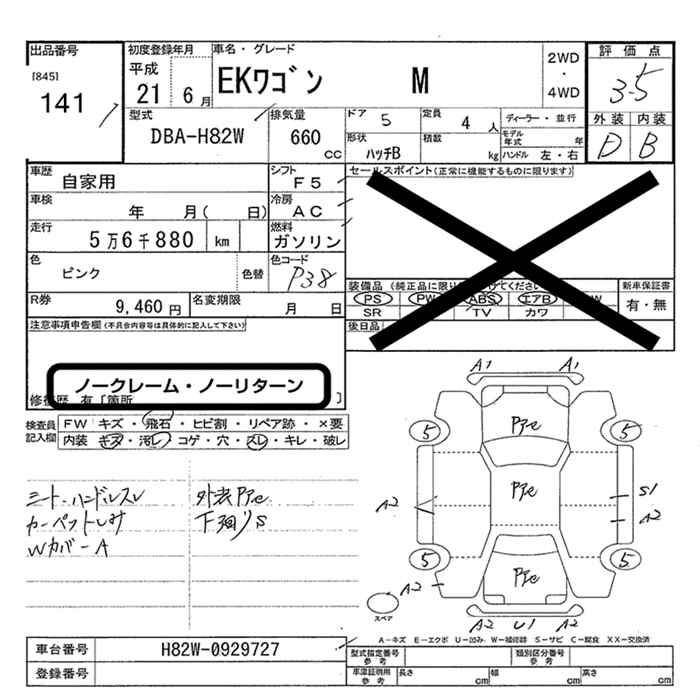 出品番号
[845]
141
初度登録年月
平成
21 6月
車名・グレード
EKワゴン M
2WD
・
4WD
評価点
3.5
外装 内装
D B
型式
DBA-H82W
排気量
660
CC
ドア
5
定員
4 人
ディーラー・並行
形状
ハッチB
積載
kg
モデル年式 年
ハンドル 左・右
車歴
自家用
シフト
F5
セールスポイント(正常に機能するものに限ります)
車検
年 月( 日)
冷房
AC
走行
5万6千880 km
燃料
ガソリン
色
ピンク
色替
色コード
P38
装備品 (純正品に限り
てください
新車保証書
有・無
PS PW ABS エアB W
SR TV カワ
R券
9,460円
名変期限
月 日
後日品
注意事項申告欄(不具合内容等は具体的に記入して下さい)
ノークレーム・ノーリターン
修復歴 有 [箇所 ]
検査員記入欄
FW キズ・飛石・ヒビ割・リペア跡・×要
内装 キズ・汚レ・コゲ・穴・スレ・キレ・破レ
シート・ハンドルスレ
カーペットしみ
Wカバ-A
下廻りS
A1 A1
5 5
A2
S1
A2
5 5
A2
A2 U1 A2
スペア
A-キズ E-エクボ U-凹み W-補修跡 S-サビ C-腐食 XX-交換済
車台番号
H82W-0929727
登録番号
型式指定番号
参考
類別区分番号
参考
車庫証明用
参考
長さ cm
幅 cm
高さ cm